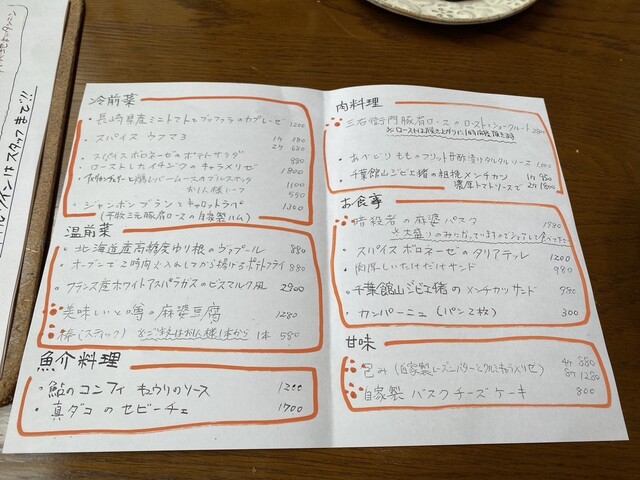 冷前菜
・長崎県産ミニトマトとブッファラのカプレーゼ 1200
・スパイス ウフマヨ 1ヶ 380
2ヶ 680
・スパイスボロネーゼのポテトサラダ 880
・ローストしたイチジクのキャラメリゼ 1800
鶏レバームースのブルスケッタ 1100
お1人様ハーフ 550
・ジャンボンブランとキャロットラペ 1300
三元豚肩ロースの自家製ハム)
温前菜
・北海道産高糖度ゆり根のヴァプール 880
・オーブンで2時間 揚げるポテトフライ 880
・フランス産ホワイトアスパラガスのビスマルク風 2900
美味いと噂の麻婆豆腐 1280
棒(スティック) 1本 580
魚介料理
・鮎のコンフィ キュウリのソース 1200
・真ダコのセビーチェ 1700
肉料理
・三右衛門豚肩ロースのロースト シュークルート
・あべどりもものフリット 甘酢漬りタルタルソース
・千葉館山ジビエ猪の粗挽メンチカツ 1ヶ 980
濃厚トマトソースで 2ヶ 1800
お食事
暗殺者の麻婆パスタ 1980
・スパイスボロネーゼのタリアテッレ 1200
・肉厚しいたけだけサンド 980
・千葉館山ジビエ猪のメンチカツサンド 980
・カンパーニュ(パン2枚) 300
甘味
包み(自家製レーズンバターとクルミキャラメリゼ) 4ヶ 880
8ヶ 1280
自家製 バスクチーズケーキ 800
ワインはスタッフまで!!!